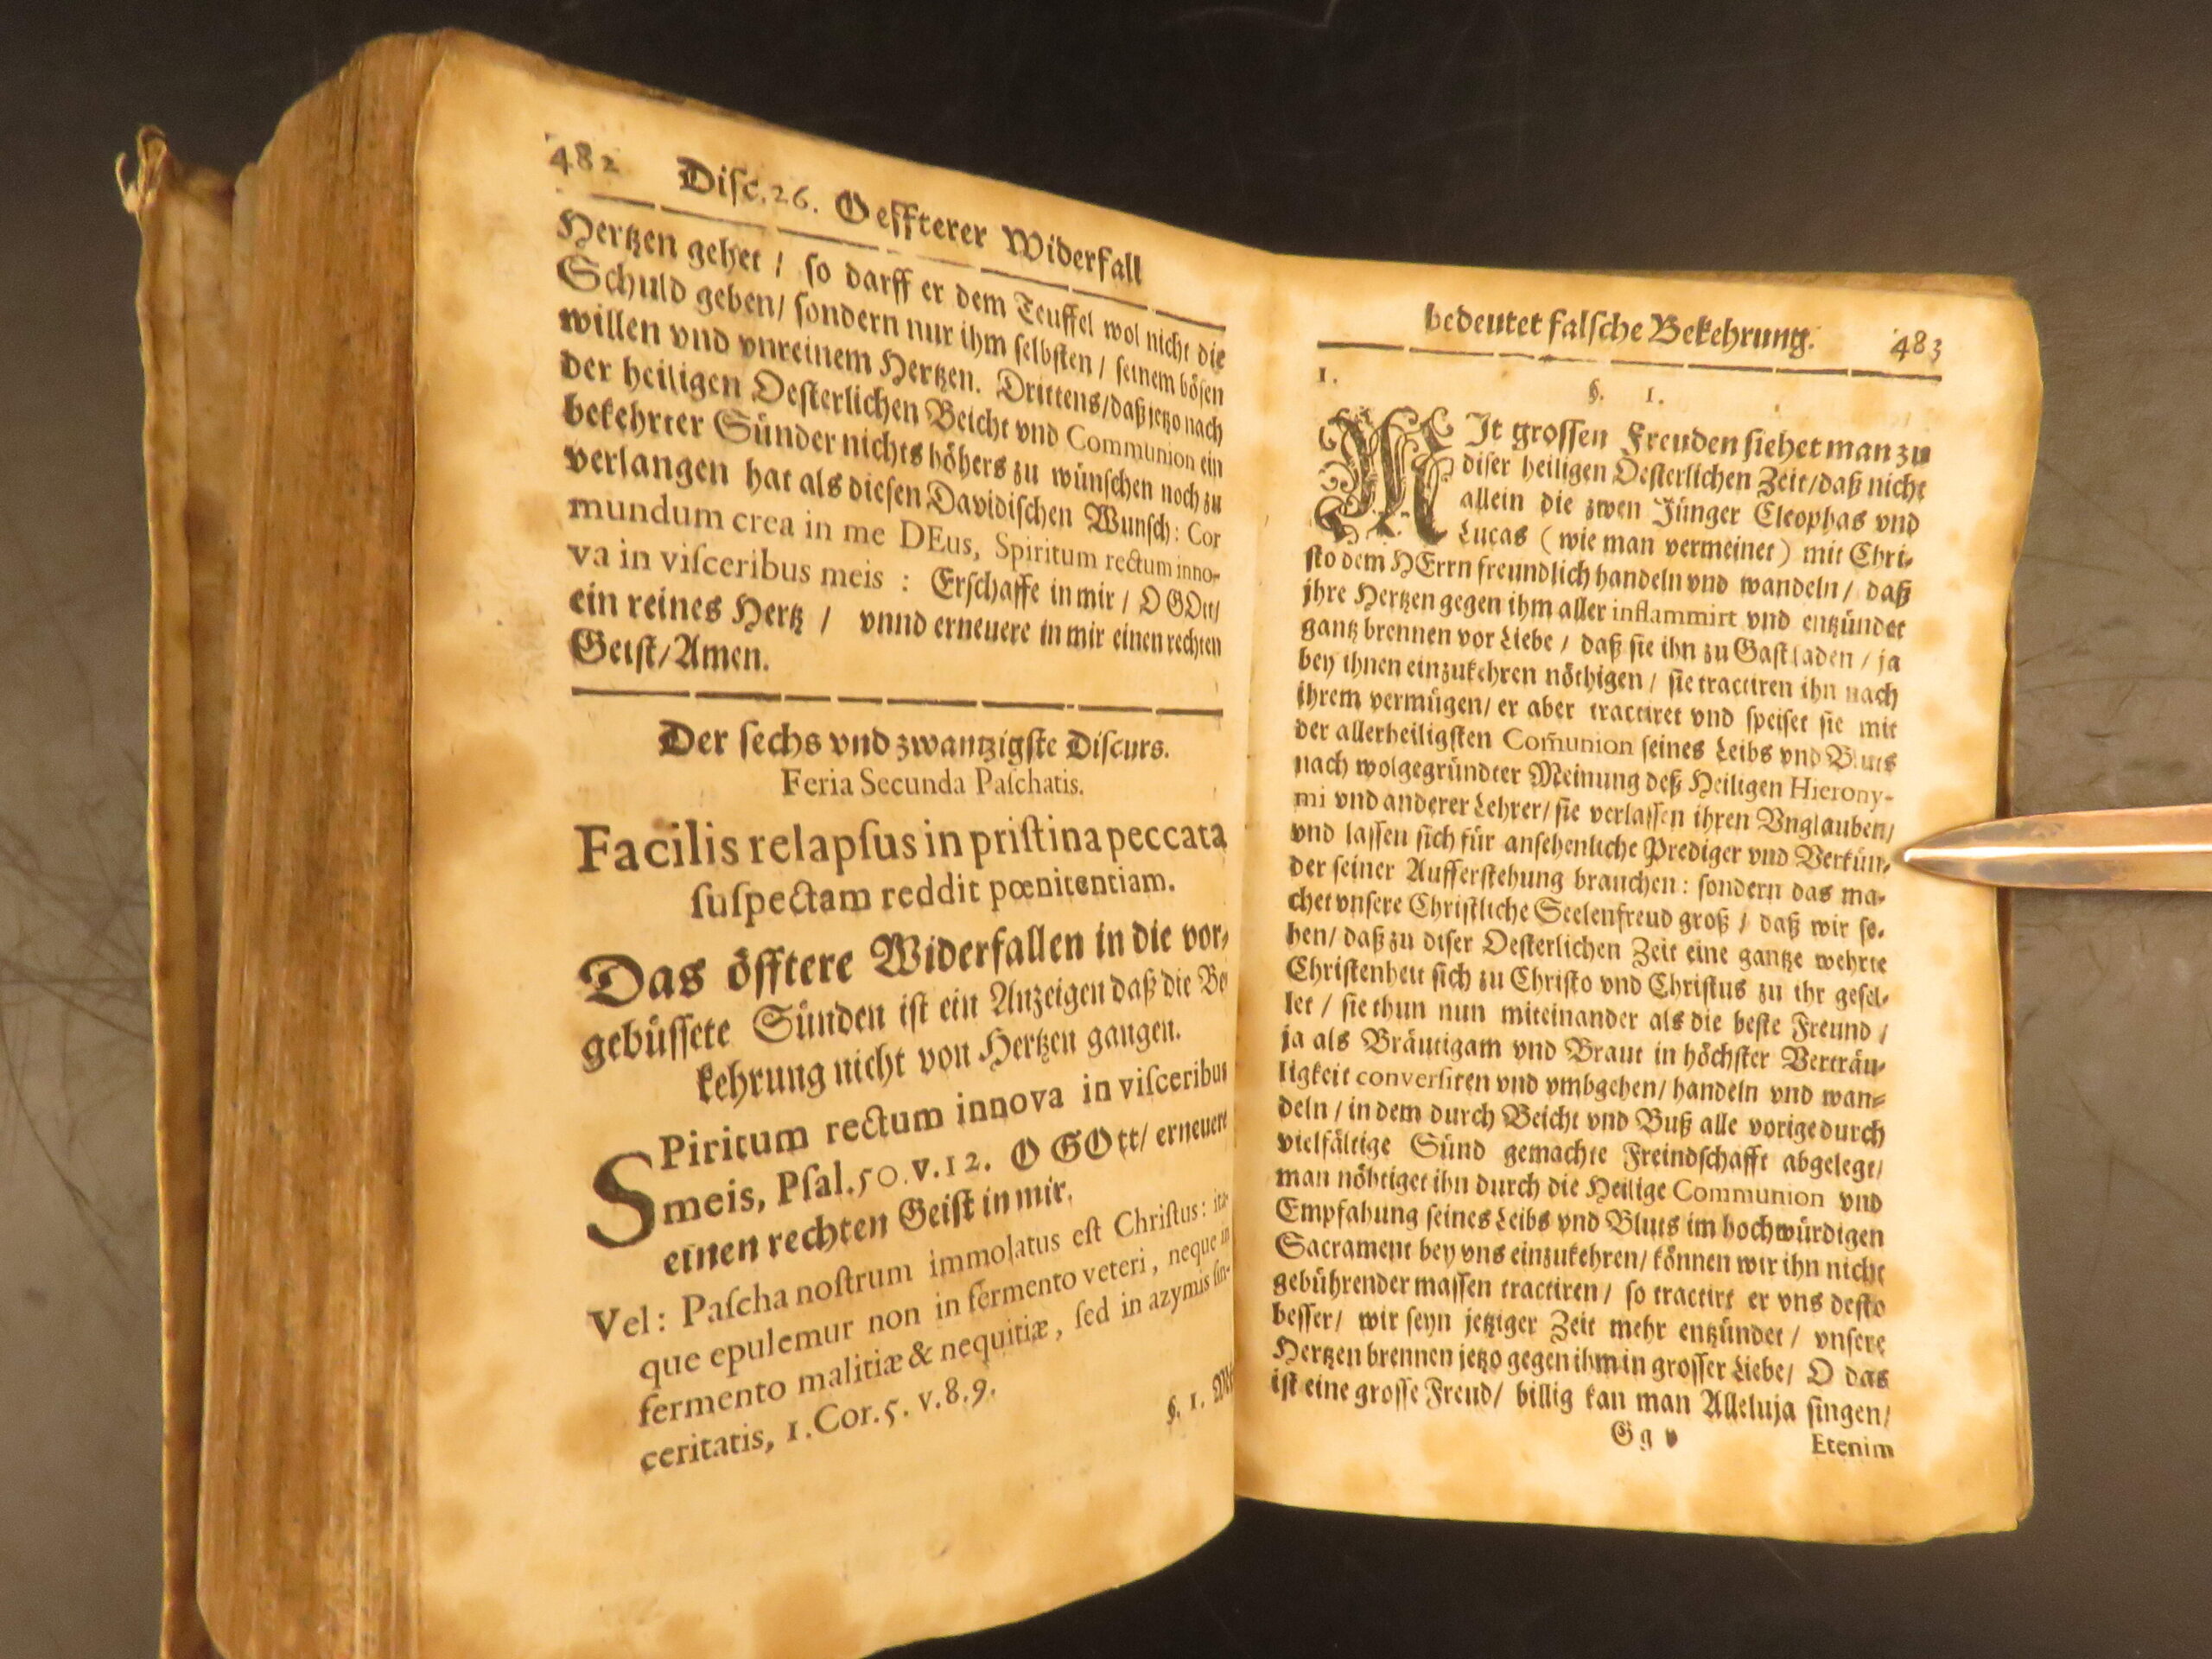 482 Diſc. 26. Oeffterer Widerfall
Hertzen gehet / ſo darff er dem Teuffel wol nicht die
Schuld geben / ſondern nur ihm ſelbſten / ſeinem böſen
willen vnd vnreinem Hertzen. Drittens / daß jetzo nach
der heiligen Oeſterlichen Beicht vnd Communion ein
bekehrter Sünder nichts höhers zu wünſchen noch zu
verlangen hat als dieſen Davidiſchen Wunſch: Cor
mundum crea in me DEus, Spiritum rectum inno-
va in viſceribus meis : Erſchaffe in mir / O GOtt /
ein reines Hertz / vnnd erneuere in mir einen rechten
Geiſt / Amen.
Der ſechs vnd zwantzigſte Diſcurs.
Feria Secunda Paſchatis.
Facilis relapſus in priſtina peccata
ſuſpectam reddit pœnitentiam.
Das öfftere Widerfallen in die vor-
gebüſſete Sünden iſt ein Anzeigen daß die Be
kehrung nicht von Hertzen gangen.
SPiritum rectum innova in viſceribus
meis, Pſal. 50. v. 12. O GOtt / erneuere
einen rechten Geiſt in mir.
Vel : Paſcha noſtrum immolatus eſt Chriſtus : ita-
que epulemur non in fermento veteri, neque in
fermento malitiæ & nequitiæ, ſed in azymis ſin-
ceritatis, 1. Cor. 5. v. 8. 9.
§. 1. Mit
bedeutet falſche Bekehrung. 483
1. §. 1.
MIt groſſen Freuden ſiehet man zu
diſer heiligen Oeſterlichen Zeit / daß nicht
allein die zwen Jünger Cleophas vnd
Lucas ( wie man vermeinet ) mit Chri-
ſto dem HErrn freundlich handeln vnd wandeln / daß
jhre Hertzen gegen ihm aller inflammirt vnd entzündet
gantz brennen vor Liebe / daß ſie ihn zu Gaſt laden / ja
bey ihnen einzukehren nöthigen / ſie tractiren ihn nach
ihrem vermügen / er aber tractiret vnd ſpeiſet ſie mit
der allerheiligſten Com̃union ſeines Leibs vnd Bluts
nach wolgegründter Meinung deß Heiligen Hierony-
mi vnd anderer Lehrer / ſie verlaſſen ihren Vnglauben /
vnd laſſen ſich für anſehenliche Prediger vnd Verkün-
der ſeiner Aufferſtehung brauchen : ſondern das ma-
chet vnſere Chriſtliche Seelenfreud groß / daß wir ſe-
hen / daß zu diſer Oeſterlichen Zeit eine gantze wehrte
Chriſtenheit ſich zu Chriſto vnd Chriſtus zu ihr geſel-
let / ſie thun nun miteinander als die beſte Freund /
ja als Bräutigam vnd Braut in höchſter Verträu-
ligkeit converſiren vnd vmbgehen / handeln vnd wan-
deln / in dem durch Beicht vnd Buß alle vorige durch
vielfältige Sünd gemachte Freindſchafft abgelegt /
man nöhtiget ihn durch die Heilige Communion vnd
Empfahung ſeines Leibs vnd Bluts im hochwürdigen
Sacrament bey vns einzukehren / können wir ihn nicht
gebührender maſſen tractiren / ſo tractirt er vns deſto
beſſer / wir ſeyn jetziger Zeit mehr entzündet / vnſere
Hertzen brennen jetzo gegen ihm in groſſer Liebe / O das
iſt eine groſſe Freud / billig kan man Alleluja ſingen /
Gg v Etenim